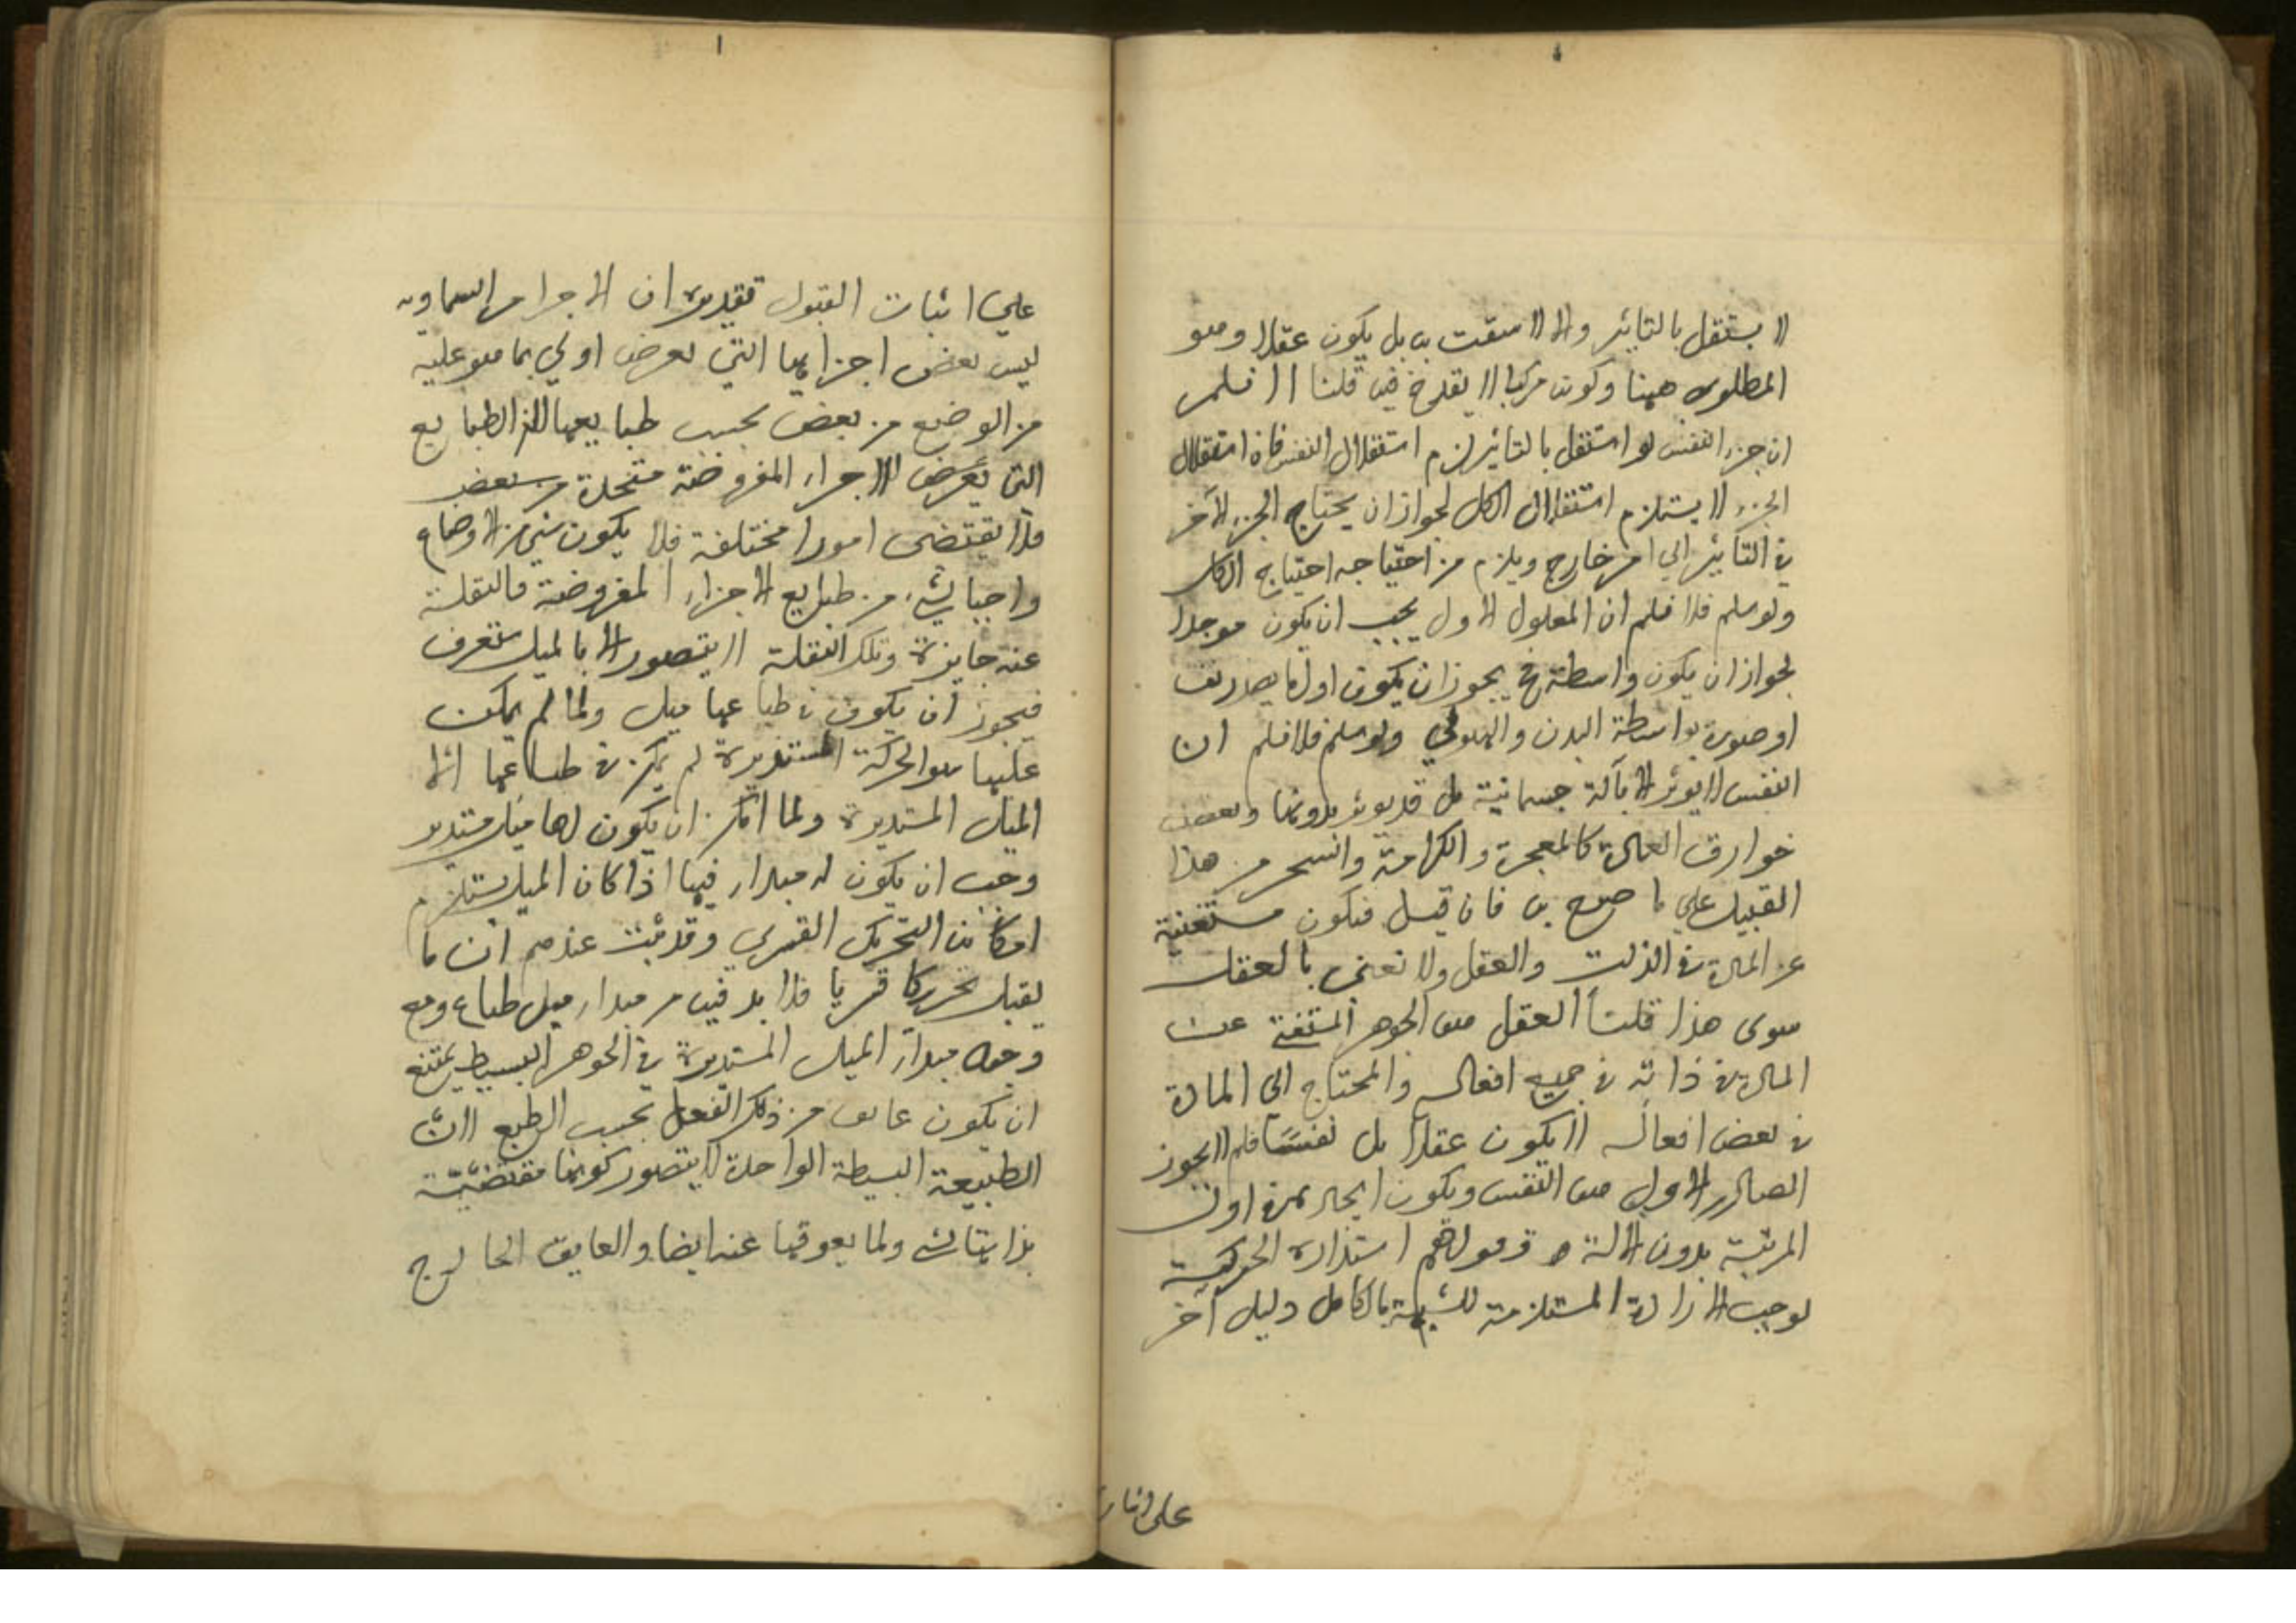 لا يستقل بالتاثير والا لاستقت به بل يكون عقلا وهو
المطلوب ههنا وكونه مركبا لا يقدح فيه قلنا لا نسلم
ان جزء النفس لو استقل بالتاثير لزم استقلال النفس فان استقلال
الجزء لا يستلزم استقلال الكل لجواز ان يحتاج الجزء الآخر
في التاثير الي امر خارج ويلزم من احتياجه احتياج الكل
ولو سلم فلا نسلم ان المعلول الاول يجب ان يكون موجدا
لجواز ان يكون واسطة يجوز ان يكون اول ما يصدر نفسا
او صورة بواسطة البدن والهيولي ولو سلم فلا نسلم ان
النفس لا يوثر الا بآلة جسمانية بل قد يوثر بدونها وبعض
خوارق العادة كالمعجزة والكرامة والسحر من هذا
القبيل علي ما صرح به فان قيل فيكون مستغنية
عن المادة في الذات والعقل ولا نعني بالعقل
سوى هذا قلنا العقل هو الجوهر المستغني عن
المادة في ذاته في جميع افعاله والمحتاج الي المادة
في بعض افعاله لا يكون عقلا بل نفسا فلم لا يجوز
الصادر الاول هو النفس ويكون ايجاده في اول
المرتبة بدون الالة وقولهم استدارة الحركة
يوجب الارادة المستلزمة للشبه بالكامل دليل آخر
على اثبات
علي اثبات القبول تقديره ان الاجرام السماويه
ليس بعض اجزايها التي يعرض اولي بما هو عليه
من الوضع من بعض بحسب طبايعها الطبايع
التي يعرض الاجزاء المفروضة متحدة بعض
فلا يقتضى امورا مختلفة فلا يكون شي من الاوضاع
واجبا لشئ من طبايع الاجزاء المفروضة فالنقلة
عنه جايزة وتلك النقلة لا يتصور الا بالميل
فيجوز ان يكون في طباعها ميل ولما لم يمكن
عليها سوا الحركة المستديرة لم يكن في طباعها الا
الميل المستديرة ولما امكن ان يكون لها ميل مستدير
وجب ان يكون له مبداء فيها اذا كان الميل يستلزم
امكان التحريك القسري وقد ثبت عندهم ان ما
يقبل تحريكا قسريا فلا بد فيه من مبداء ميل طباع ومع
وجود مبداء الميل المستديرة في الجوهر البسيط يمتنع
ان يكون عايق من ذلك الفعل بحسب الطبع لان
الطبيعة البسيطة الواحدة لا يتصور كونها مقتضية
بذاتها لشئ ولما يعوقها عنه ايضا والعايق الخارج